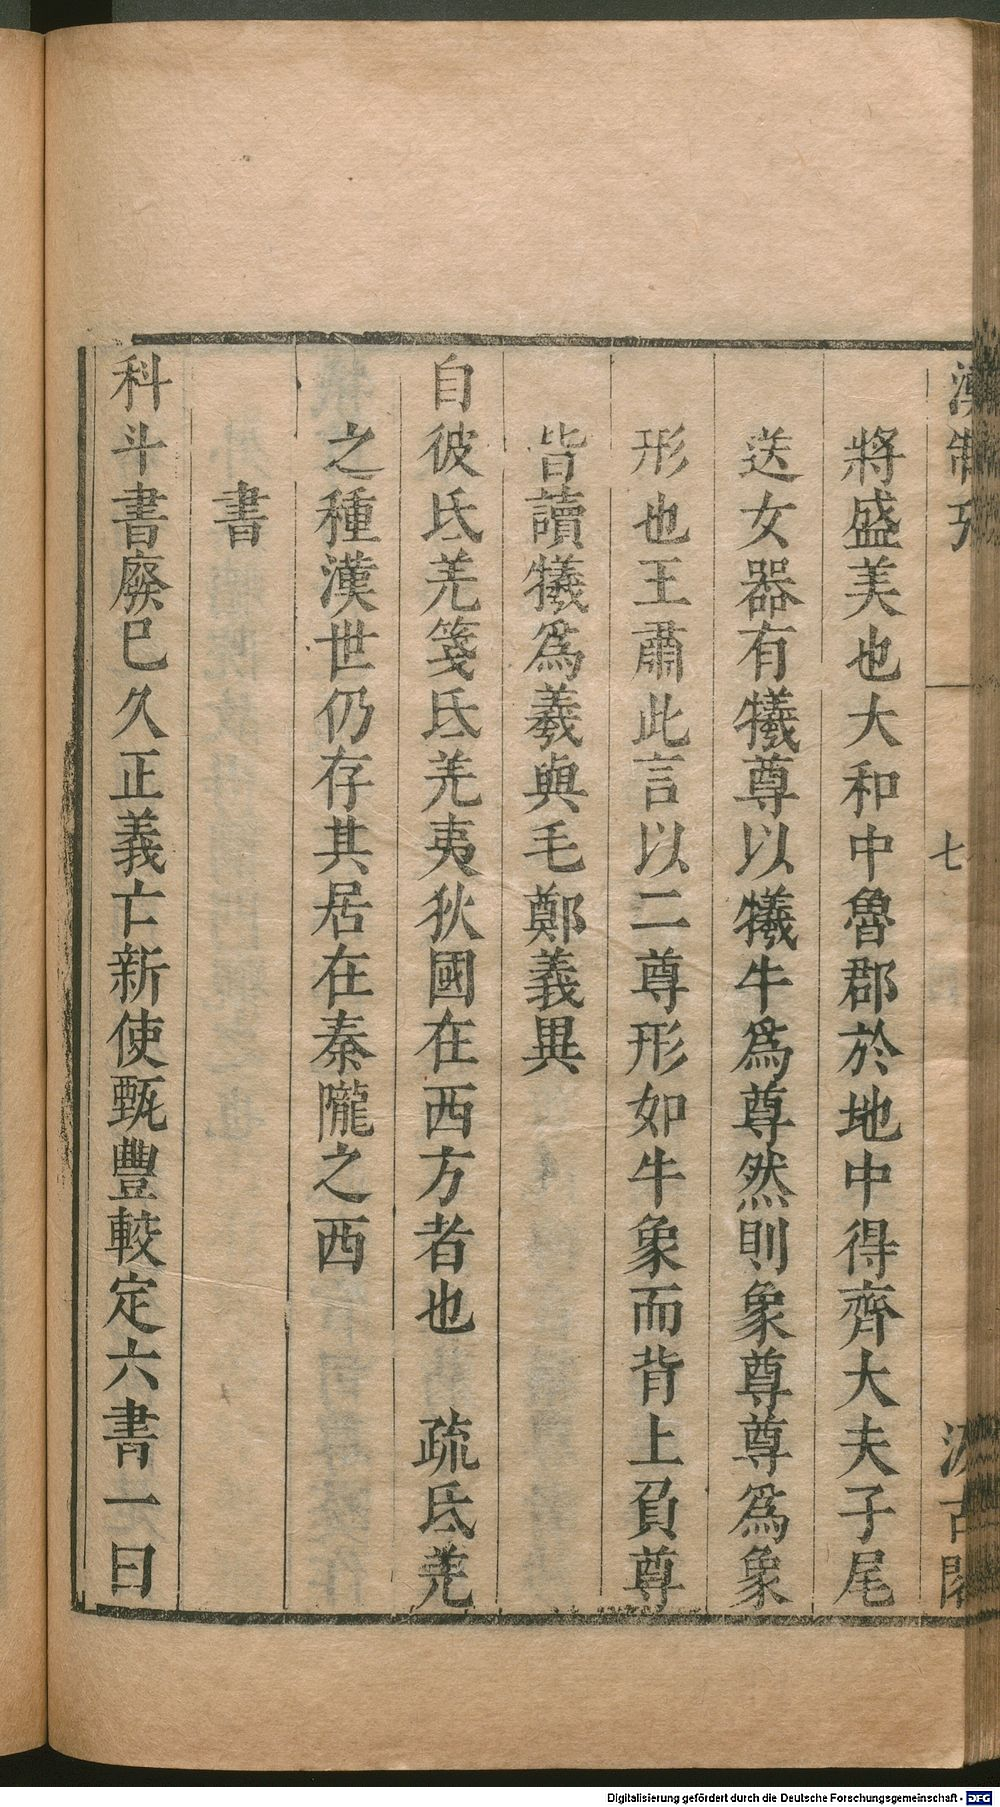 漢制攷 七 汲古閣
將盛美也大和中魯郡於地中得齊大夫子尾
送女器有犧尊以犧牛爲尊然則象尊尊爲象
形也王肅此言以二尊形如牛象而背上負尊
皆讀犧爲羲與毛鄭義異
自彼氐羌箋氐羌夷狄國在西方者也 疏氐羌
之種漢世仍存其居在秦隴之西
書
科斗書廢已久正義亡新使甄豐較定六書一曰
Digitalisierung gefördert durch die Deutsche Forschungsgemeinschaft - DFG